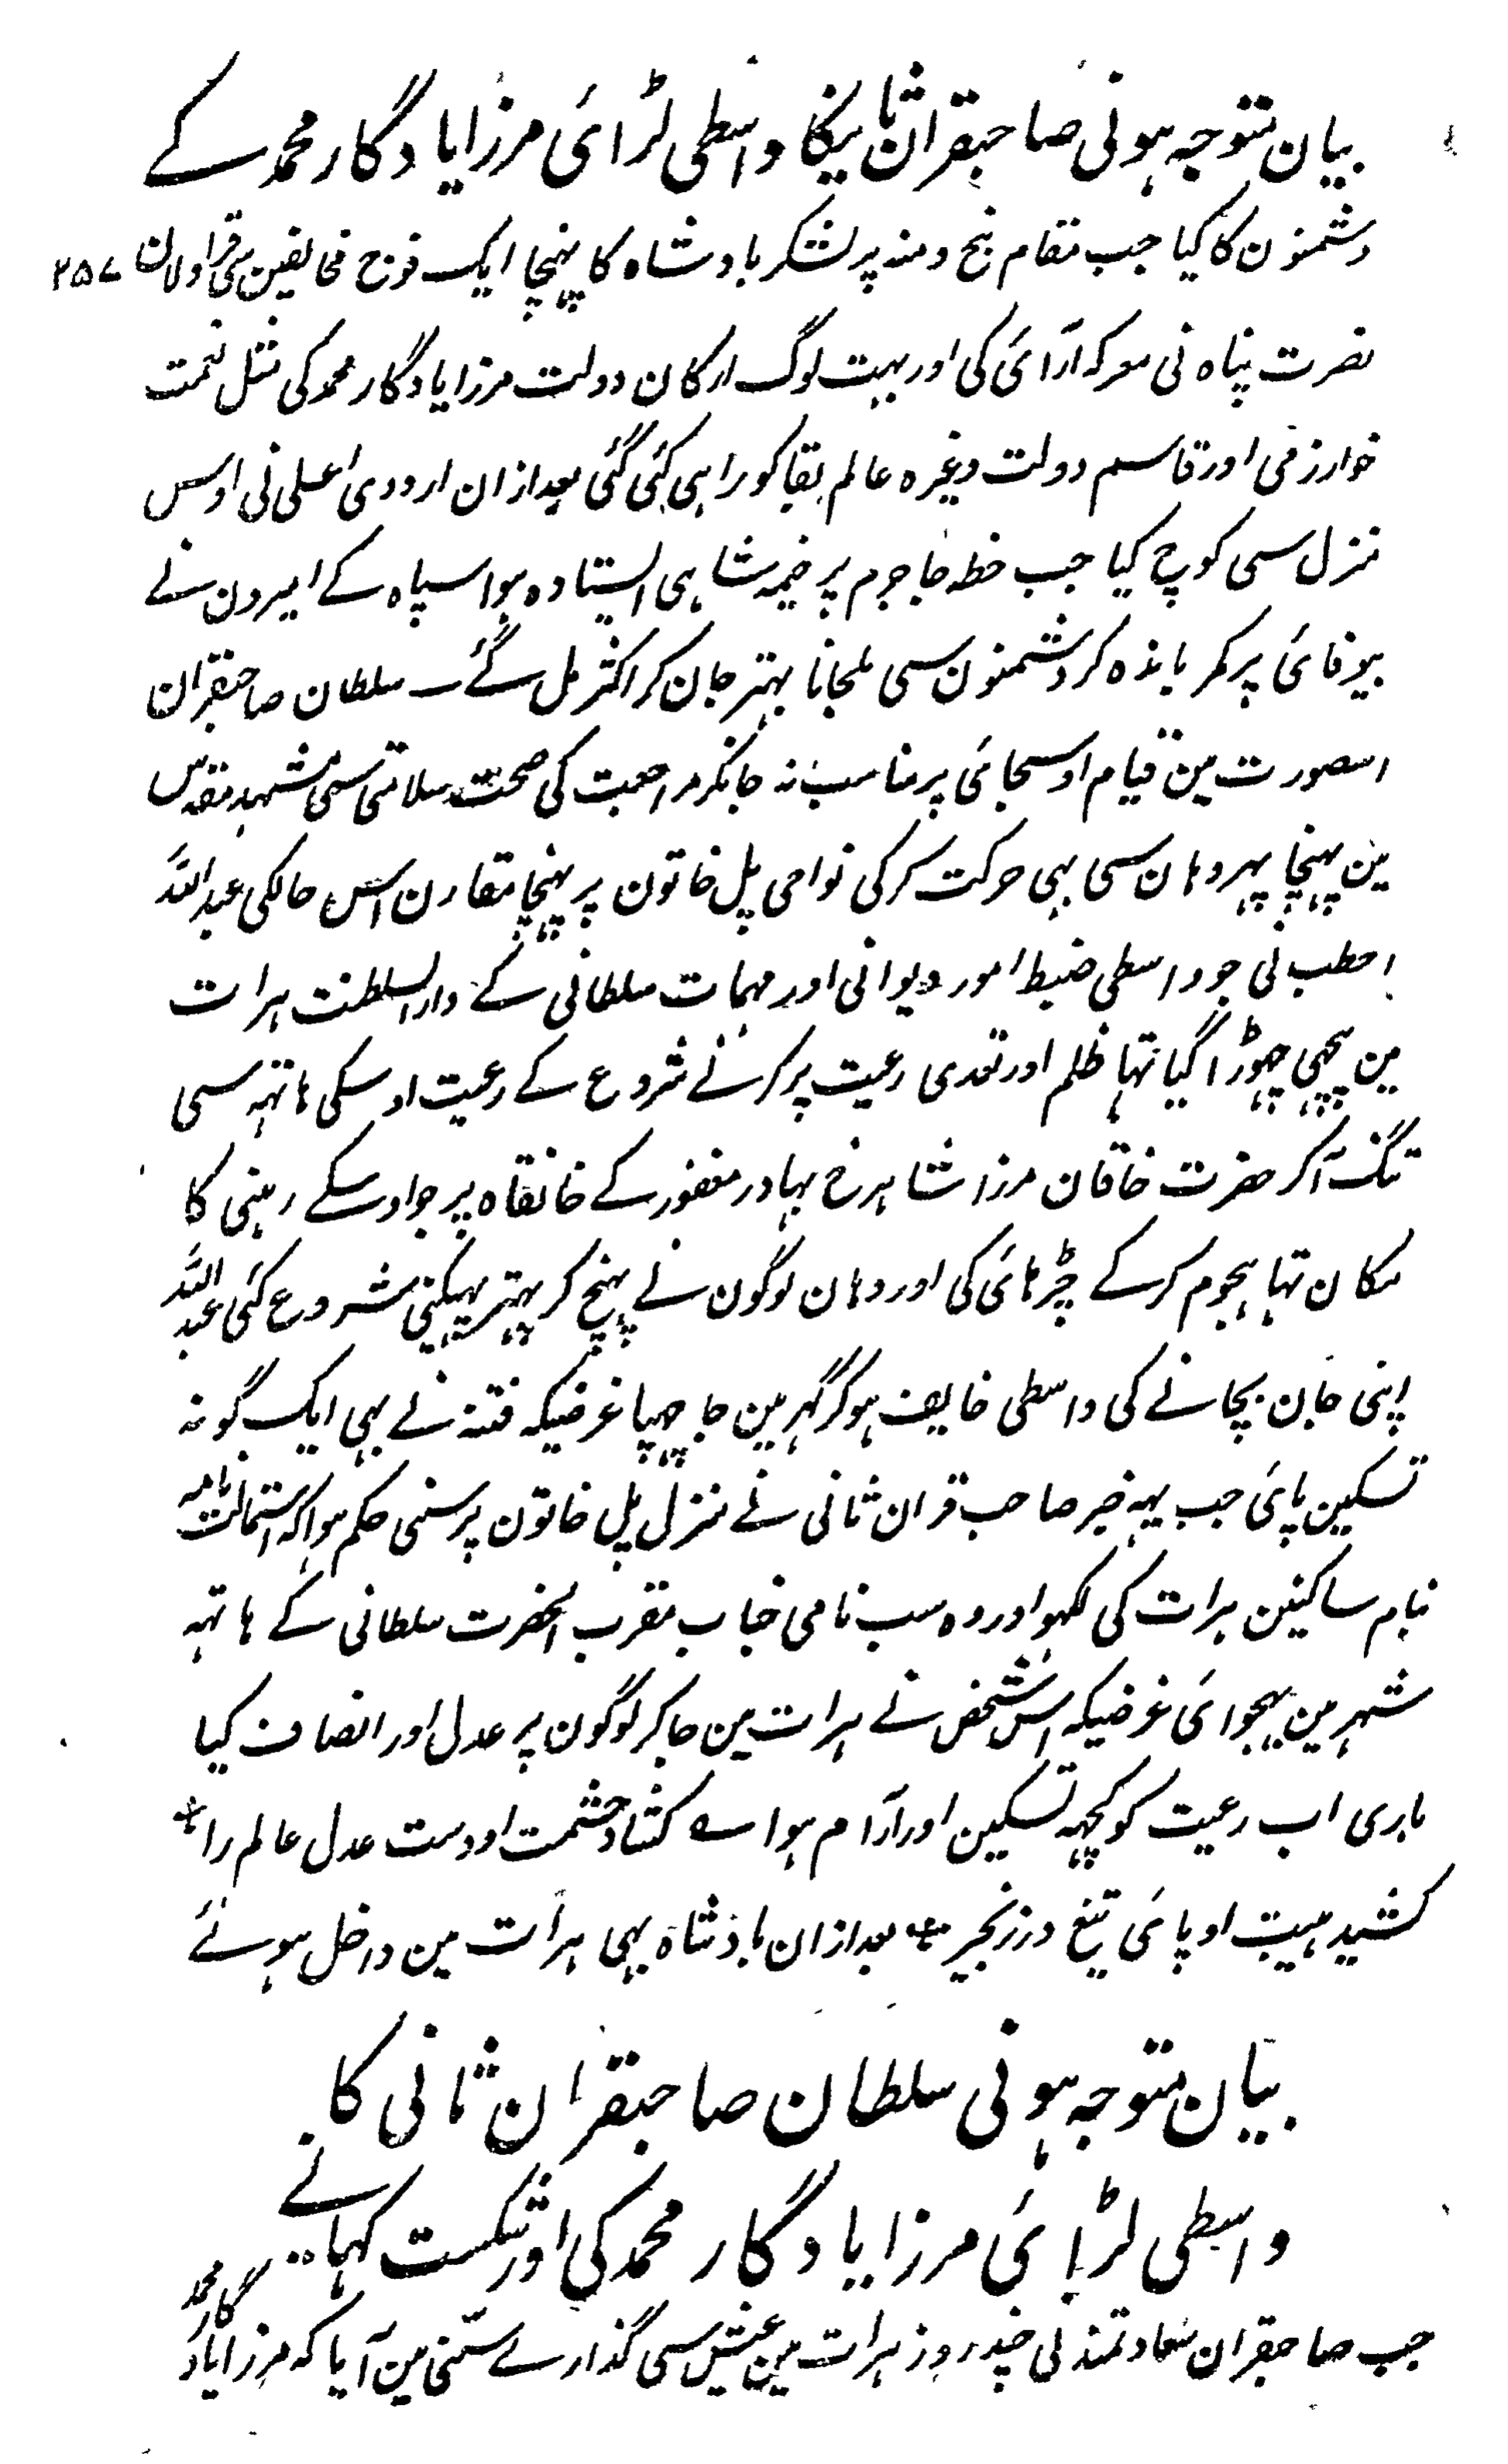 بیان متوجہ ہونی صاحبقران ثانیکا واسطی لڑائی مرزا یادگار محمد کے
دشمنون کا کیا جب مقام پنج دمنہ پر لشکر بادشاہ کا پہنچا ایک فوج مخالفین سی قراولان ۲۵۷
نصرت پناہ نی معرکہ آرائی کی اور بہت لوگ ارکان دولت مرزا یادگار محمد کی مثل نعمت
خوارزمی اور قاسم دولت وغیرہ عالم بقا کو راہی کئی گئی بعد ازان اردوی اعلی نی اوس
منزل سی کوچ کیا جب خطہ جاجرم پر خیمہ شاہی ایستادہ ہوا سپاہ کے امیرون نے
بیوفائی پر کمر باندہ کر دشمنون سی ملجانا بہتر جان کر اکثر مل گئے سلطان صاحبقران
اسصورت مین قیام اوسجائی پر مناسب نہ جانکر مراجعت کی صحت سلامتی سی مشہد مقدس
مین پہنچا پہر وہان سی بہی حرکت کرکی نواحی پل خاتون پر پہنچا مقارن اس حالکی عبد اللہ
اخطب نی جو واسطی ضبط امور دیوانی اور مہمات سلطانی کے دار السلطنت ہرات
مین پیچہی چہوڑا گیا تہا ظلم اور تعدی رعیت پر کرنے شروع کے رعیت اوسکی ہاتہہ سی
تنگ آکر حضرت خاقان مرزا شاہرخ بہادر مغفور کے خانقاہ پر جو اوسکے رہنی کا
مکان تہا ہجوم کرکے چڑہائی کی اور وہان لوگون نے پہنچ کر پہتر پہیکنی شروع کئی عبد اللہ
اپنی جان بچانے کی واسطی خایف ہوکر گہر مین جا چہپا غرضیکہ فتنہ نے بہی ایک گونہ
تسکین پائی جب یہہ خبر صاحب قران ثانی نے منزل پل خاتون پر سنی حکم ہوا کہ استمالت نامہ
بنام ساکنین ہرات کی لکہو اور وہ سب نامی جناب مقرب الحضرت سلطانی کے ہاتہہ
شہر مین بہجوائی غرضیکہ اس شخص نے ہرات مین جاکر لوگون پر عدل اور انصاف کیا
باری اب رعیت کو کچہہ تسکین اور آرام ہوا ؎ کشاد حشمت او دست عدل عالم را *
کشید ہیبت او پائی تیغ در زنجیر * بعد ازان بادشاہ بہی ہرات مین داخل ہوئے
بیان متوجہ ہونی سلطان صاحبقران ثانی کا
واسطی لڑائی مرزا یادگار محمد کی اور شکست کہانے
جب صاحبقران سعادتمند نی چند روز ہرات مین عیش سی گذارے سننی مین آیا کہ مرزا یادگار محمد